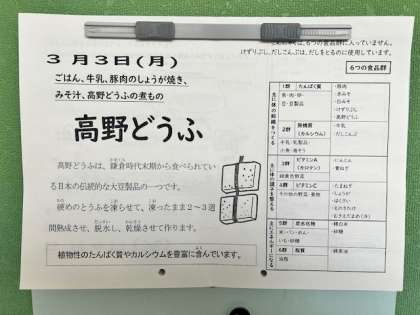 は、6つの食品群に入っていません。
けずりぶし、だしこんぶは、だしをとるのに使用しています。
3月3日(月)
ごはん、牛乳、豚肉のしょうが焼き、
みそ汁、高野どうふの煮もの
高野どうふ
高野どうふは、鎌倉時代末期から食べられてい
る日本の伝統的な大豆製品の一つです。
硬めのとうふを凍らせて、凍ったまま2~3週
間熟成させ、脱水し、乾燥させて作ります。
植物性のたんぱく質やカルシウムを豊富に含んでいます。
6つの食品群
主に体の組織をつくる
1群 たんぱく質
魚・肉・卵・
豆・豆製品
・豚肉
・赤みそ
・白みそ
・けずりぶし
・高野どうふ
2群 無機質
(カルシウム)
牛乳・乳製品・
小魚・海そう
・牛乳
・だしこんぶ
主に体の調子を整える
3群 ビタミンA
(カロテン)
緑黄色野菜
・にんじん
・青ねぎ
4群 ビタミンC
その他の野菜・果物
・たまねぎ
・しょうが
・はくさい
主にエネルギーになる
5群 炭水化物
米・パン・めん・
いも・砂糖
・精白米
・砂糖
6群 脂質
油脂
・綿実油